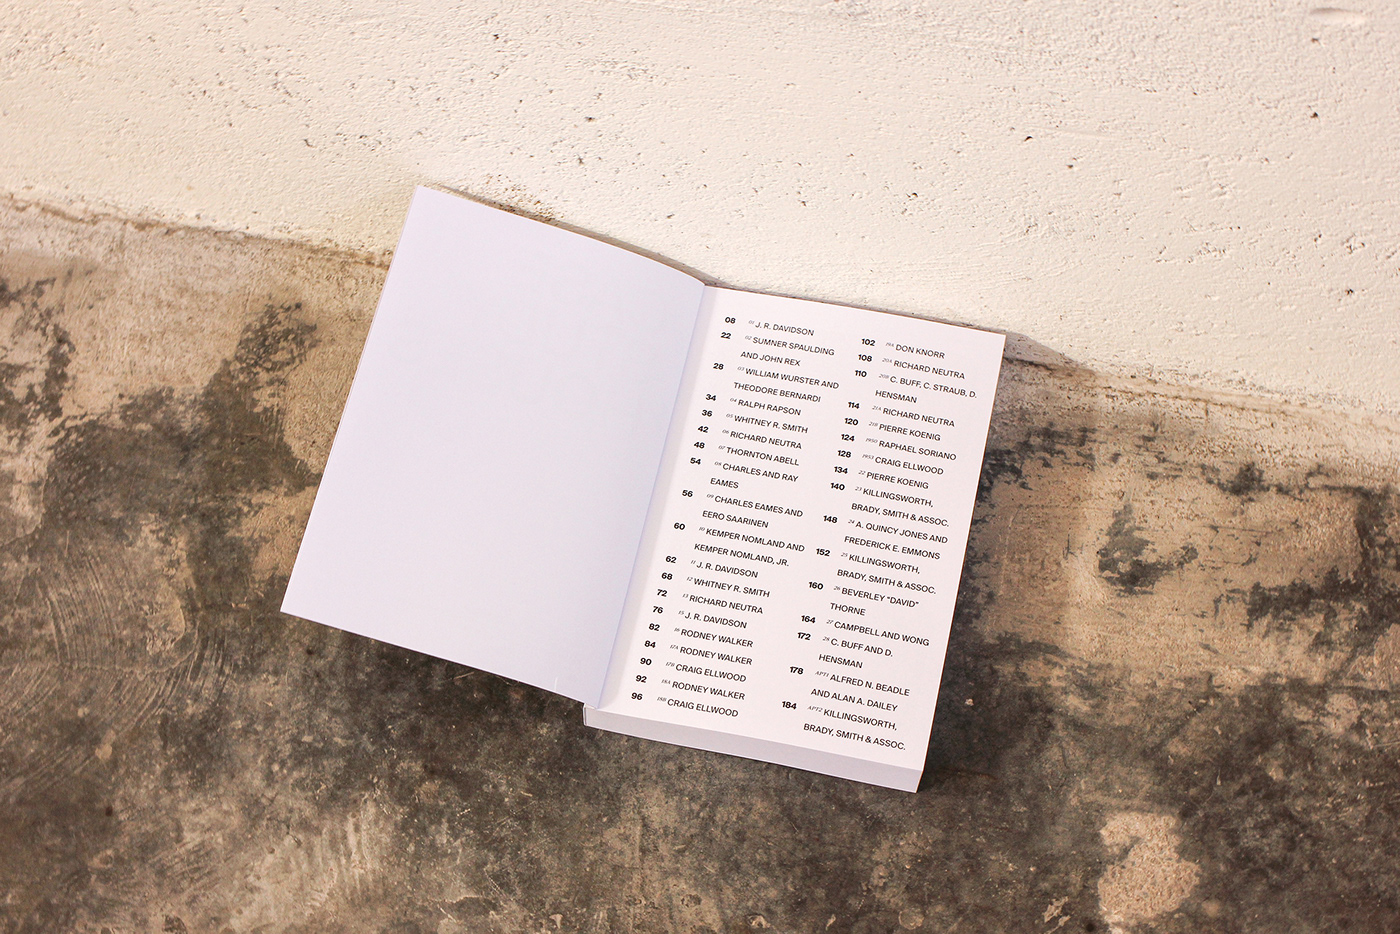 08 01 J. R. DAVIDSON
22 02 SUMNER SPAULDING
AND JOHN REX
28 03 WILLIAM WURSTER AND
THEODORE BERNARDI
34 04 RALPH RAPSON
36 05 WHITNEY R. SMITH
42 06 RICHARD NEUTRA
48 07 THORNTON ABELL
54 08 CHARLES AND RAY
EAMES
56 09 CHARLES EAMES AND
EERO SAARINEN
60 10 KEMPER NOMLAND AND
KEMPER NOMLAND, JR.
62 11 J. R. DAVIDSON
68 12 WHITNEY R. SMITH
72 13 RICHARD NEUTRA
76 15 J. R. DAVIDSON
82 16 RODNEY WALKER
84 17A RODNEY WALKER
90 17B CRAIG ELLWOOD
92 18A RODNEY WALKER
96 18B CRAIG ELLWOOD
102 19A DON KNORR
108 20A RICHARD NEUTRA
110 20B C. BUFF, C. STRAUB, D.
HENSMAN
114 21A RICHARD NEUTRA
120 21B PIERRE KOENIG
124 1950 RAPHAEL SORIANO
128 1953 CRAIG ELLWOOD
134 22 PIERRE KOENIG
140 23 KILLINGSWORTH,
BRADY, SMITH & ASSOC.
148 24 A. QUINCY JONES AND
FREDERICK E. EMMONS
152 25 KILLINGSWORTH,
BRADY, SMITH & ASSOC.
160 26 BEVERLEY "DAVID"
THORNE
164 27 CAMPBELL AND WONG
172 28 C. BUFF AND D.
HENSMAN
178 APT1 ALFRED N. BEADLE
AND ALAN A. DAILEY
184 APT2 KILLINGSWORTH,
BRADY, SMITH & ASSOC.